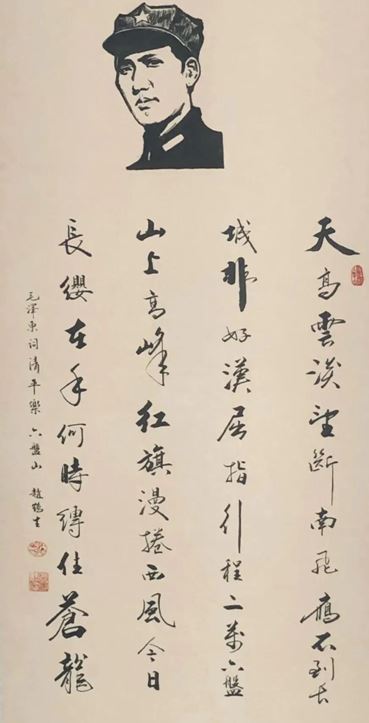 天高雲淡望斷南飛鴈不到长
城非好漢屈指行程二萬六盤
山上高峰红旗漫捲西風今日
長纓在手何時縛住蒼龍
毛澤東詞清平樂六盤山